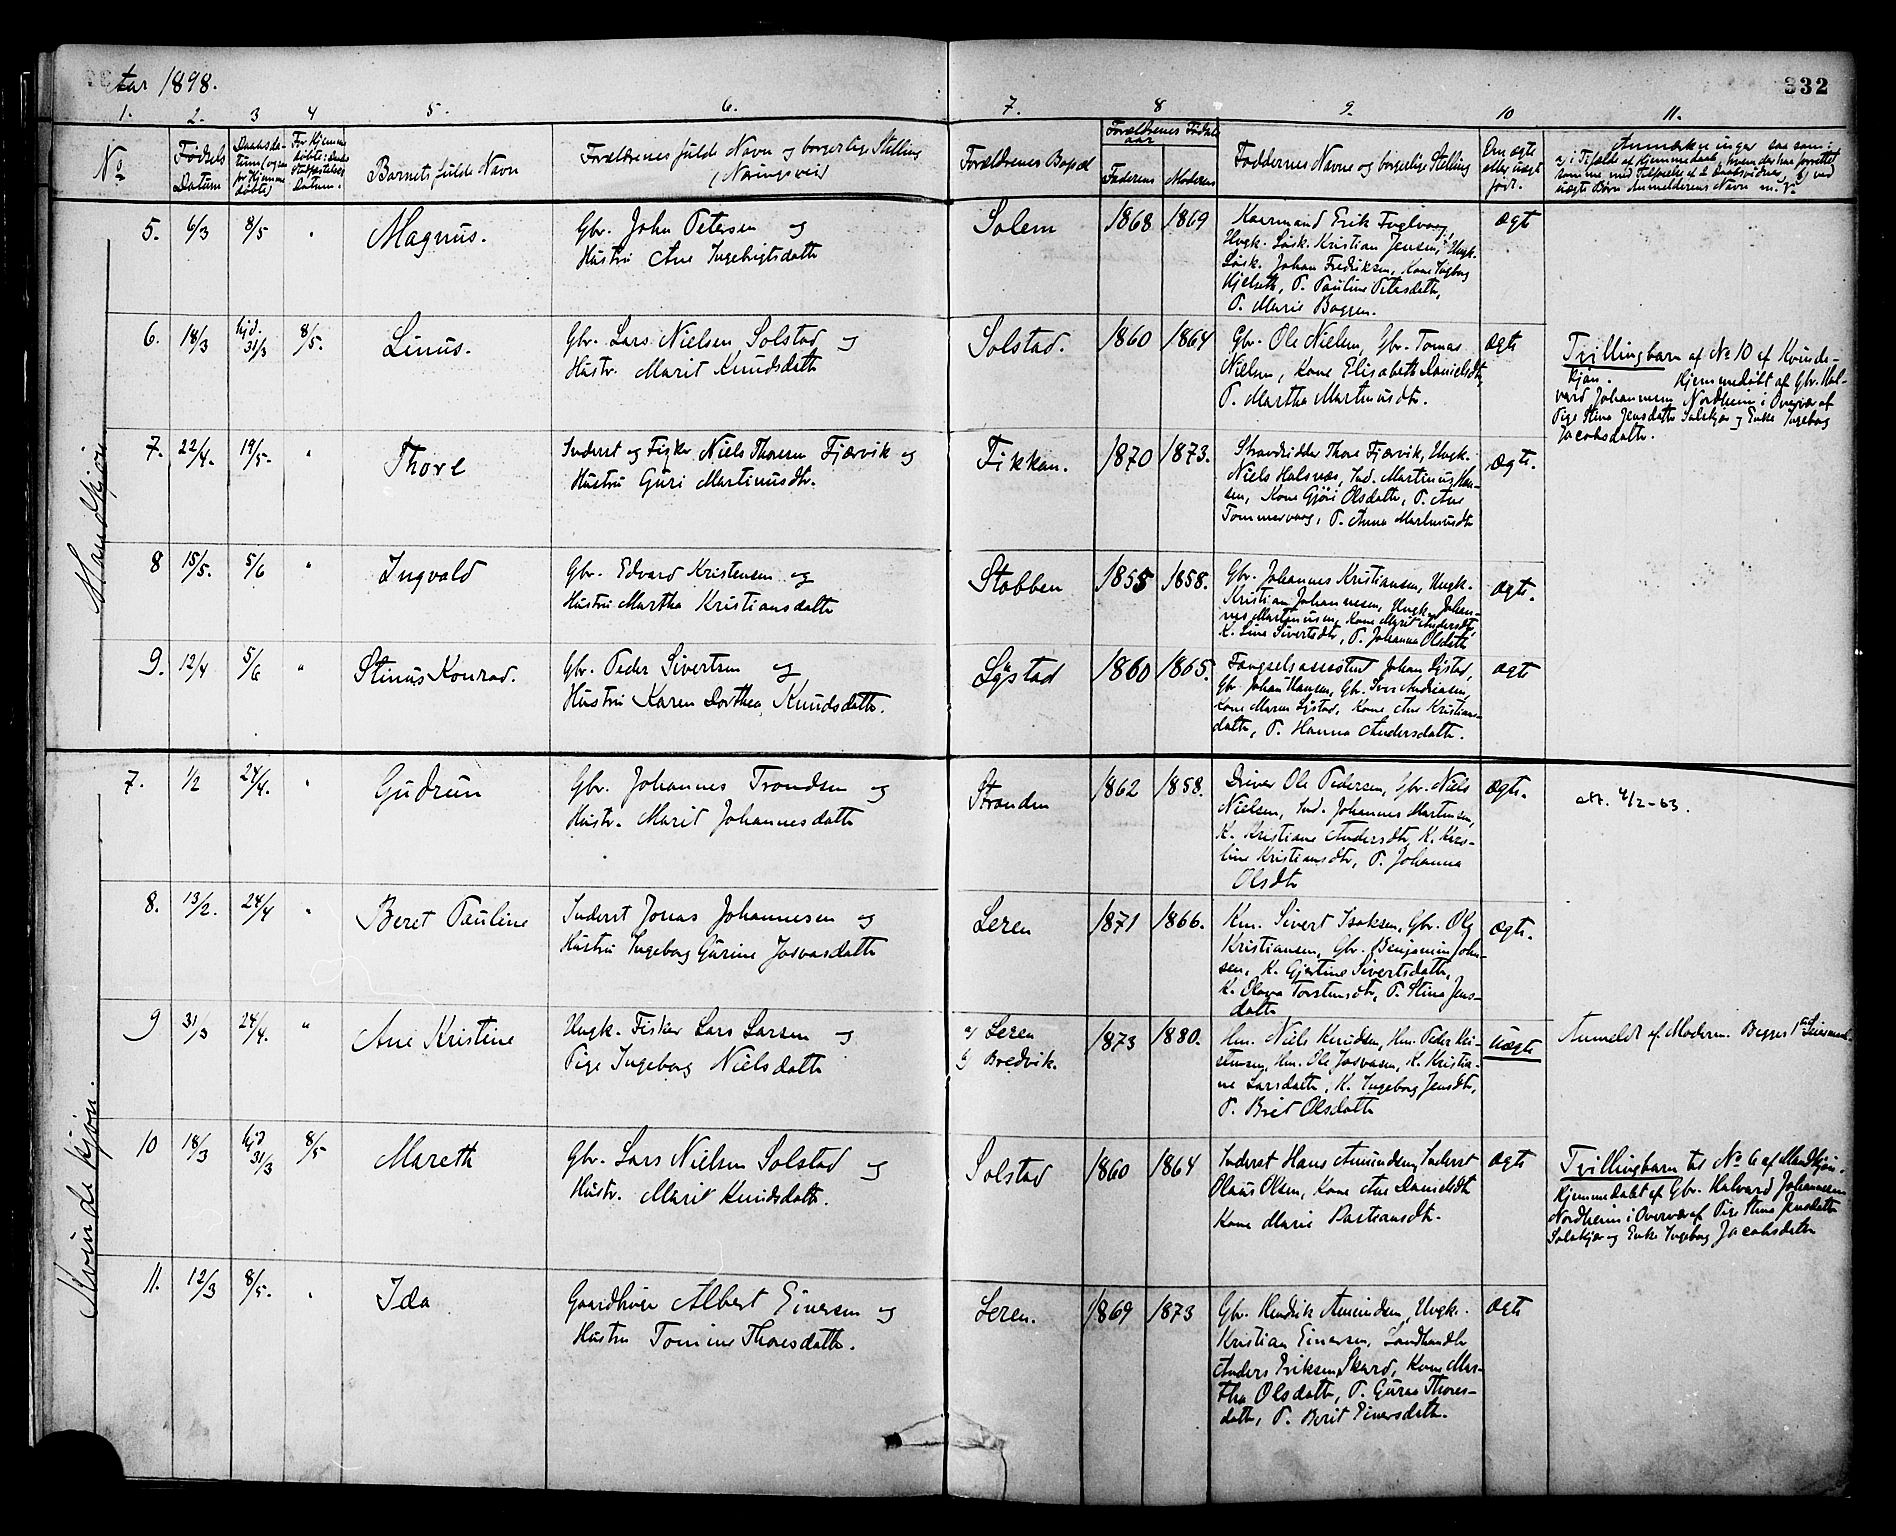 Aar 1898.
332
1. 2. 3 4 5. 6. 7. 8 9. 10 11.
No
Fødsels
Datum
Daabsda-
tum (ogsaa
for Hjemme
døbte)
For Hjemme
døbte: deres
Datum.
Barnets fulde Navn
Forældrenes fulde Navn og borgerlige Stilling
(Næringsvei)
Forældrenes Bopæl
Forældrenes Fødsels
aar
Faderens Moderens
Faddernes Navne og borgerlige Stilling
Om ægte
eller uægte
født.
Anmærkninger saasom:
a, i Tilfælde af Hjemmedaab, hvem der har forrettet
samme med Tilføielse af 2 Daabsvidner, b) ved
uægte Børn Anmelderens Navn m. v.
Mandkjøn
5. 6/3 8/5 " Magnus.
Gbr. John Petersen og
Hustru Ane Ingebrigtsdattr
Solem 1868 1869
Kaarmand Erik Fuglvaag,
Ungk. Løsk. Kristian Jensen, Ungk.
Løsk. Johan Fredriksen, Kone Ingborg
Hjelseth, P. Pauline Petersdattr,
P. Marie Boggen.
ægt
6. 18/3 hjd. 31/3 8/5. Linus.
Gbr. Lars Nielsen Solstad og
Hustr. Marit Knudsdattr
Solstad. 1860 1864
Gbr. Ole Nielsen, Gbr. Tomas
Nielsen, Kone Elisabeth Danielsdtr,
P. Martha Martinusdtr.
ægte
Tvillingbarn af No 10 af Kvinde-
kjøn. Hjemmedøbt af Gbr. Hal-
vard Johannesen Nordheim i Overvær af
Pige Stina Jensdattr Solskjær og Enke Ingeborg
Jacobsdattr.
7. 22/4. 19/5. " Thore
Inderst og Fisker Niels Thoresen Fjærvik og
Hustru Guri Martinusdtr.
Fikkan. 1870 1873.
Strandsidder Thore Fjærvik, Ungk.
Niels Halsnæs, Ind. Martinus Han-
sen, Kone Gjøri Olsdattr, P. Ane
Tømmervaag, P. Anna Martinusdtr
ægte.
8 15/5. 5/6 " Ingvald
Gbr. Edvard Kristensen og
Hustru Martha Kristiansdattr
Stobben 1855 1858.
Gbr. Johannes Kristiansen, Ungk.
Kristian Johannesen, Ungk. Johan-
nes Martinusen, Kone Marit Andersdtr,
K. Lina Sivertsdtr, P. Johanna Olsdattr
ægte.
9. 12/4 5/6 " Stinus Konrad.
Gbr. Peder Sivertsen og
Hustru Karen Dorthea Knudsdattr.
Lystad 1860 1865.
Fængselsassistent Johan Lystad,
Gbr. Johan Hansen, Gbr. Iver Andreasen,
Kone Maren Lystad, Kone Ane Kristians-
dattr, P. Hanna Andersdattr.
ægt
Kvindekjøn.
7. 1/2 24/4. " Gudrun
Gbr. Johannes Trondsen og
Hustr. Marit Johannesdattr
Stranden 1862 1858.
Driver Ole Pedersen, Gbr. Niels
Nielsen, Ind. Johannes Martinsen,
K. Kristiane Andersdtr, K. Karo-
line Kristiansdtr, P. Johanna
Olsdtr
ægte.
att. 4/2-63.
8. 13/2. 24/4 " Beret Pauline
Inderst Jonas Johannesen og
Hustru Ingeborg Gurine Josvasdattr
Leren 1871 1866.
Km. Sivert Isaksen, Gbr. Ole
Kristiansen, Gbr. Benjamin John-
sen, K. Gjertine Sivertsdattr,
K. Olava Torstensdtr, P. Stina Jens-
dattr
ægte.
9 31/3 24/4. " Ane Kristine
Ungk. Fisker Lars Larsen og
Pige Ingeborg Nielsdattr
a) Leren
b) Bredvik.
1873 1880.
Hm. Niels Knudsen, Hm. Peder Kri-
stensen, Hm. Ole Josvasen, K. Kristia-
ne Larsdattr, K. Ingeborg Jensdtr,
P. Brit Olsdattr
uægte
Anmeldt af Moderen. Begges 1ste Leiermaal.
10 18/3 hjd 31/3 8/5 Mareth
Gbr. Lars Nielsen Solstad og
Hustr. Marit Knudsdattr.
Solstad 1860 1864
Inderst Hans Amundsen, Inderst
Olaus Olsen, Kone Ane Danielsdtr
Kone Marie Bastiansdtr.
ægte
Tvillingbarn til No 6 af Mandkjøn.
Hjemmedøbt af Gbr. Halvard Johannesen
Nordheim i Overvær af Pige Stina Jensdattr
Solskjær og Enke Ingeborg Jacobsdattr
11. 12/3 8/5. " Ida
Gaardbruger Albert Einersen og
Hustru Tomine Thoresdattr.
Leren. 1869 1873
Gbr. Hendrik Amundsen, Ungk.
Kristian Einersen, Landhandler
Anders Eriksen Skard, Kone Mar-
tha Olsdattr, P. Guraa Thores-
dattr, P. Berit Einersdattr.
ægte